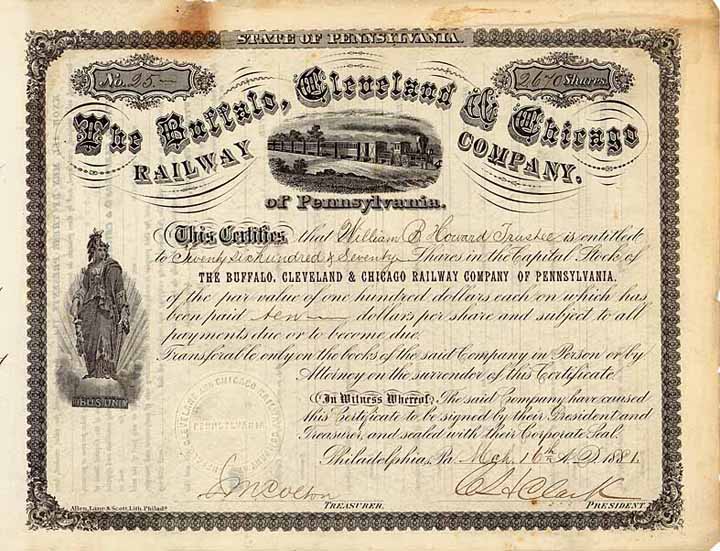 STATE OF PENNSYLVANIA
No. 25
2670 Shares
The Buffalo, Cleveland & Chicago
RAILWAY COMPANY.
of Pennsylvania.
This Certifies that William B Howard Trustee is entitled
to Twenty Six hundred & Seventy Shares in the Capital Stock of
THE BUFFALO, CLEVELAND & CHICAGO RAILWAY COMPANY OF PENNSYLVANIA.
of the par value of one hundred dollars each on which has
been paid ten dollars per share and subject to all
payments due or to become due.
Transferable only on the books of the said Company in Person or by
Attorney on the surrender of this Certificate.
In Witness Whereof, The said Company have caused
this Certificate to be signed by their President and
Treasurer, and sealed with their Corporate Seal.
Philadelphia, Pa. Mch. 16th A.D. 1881.
CLEVELAND AND CHICAGO RAILWAY
PENNSYLVANIA
TREASURER.
PRESIDENT.
Allen, Lane & Scott, Lith. Philada.